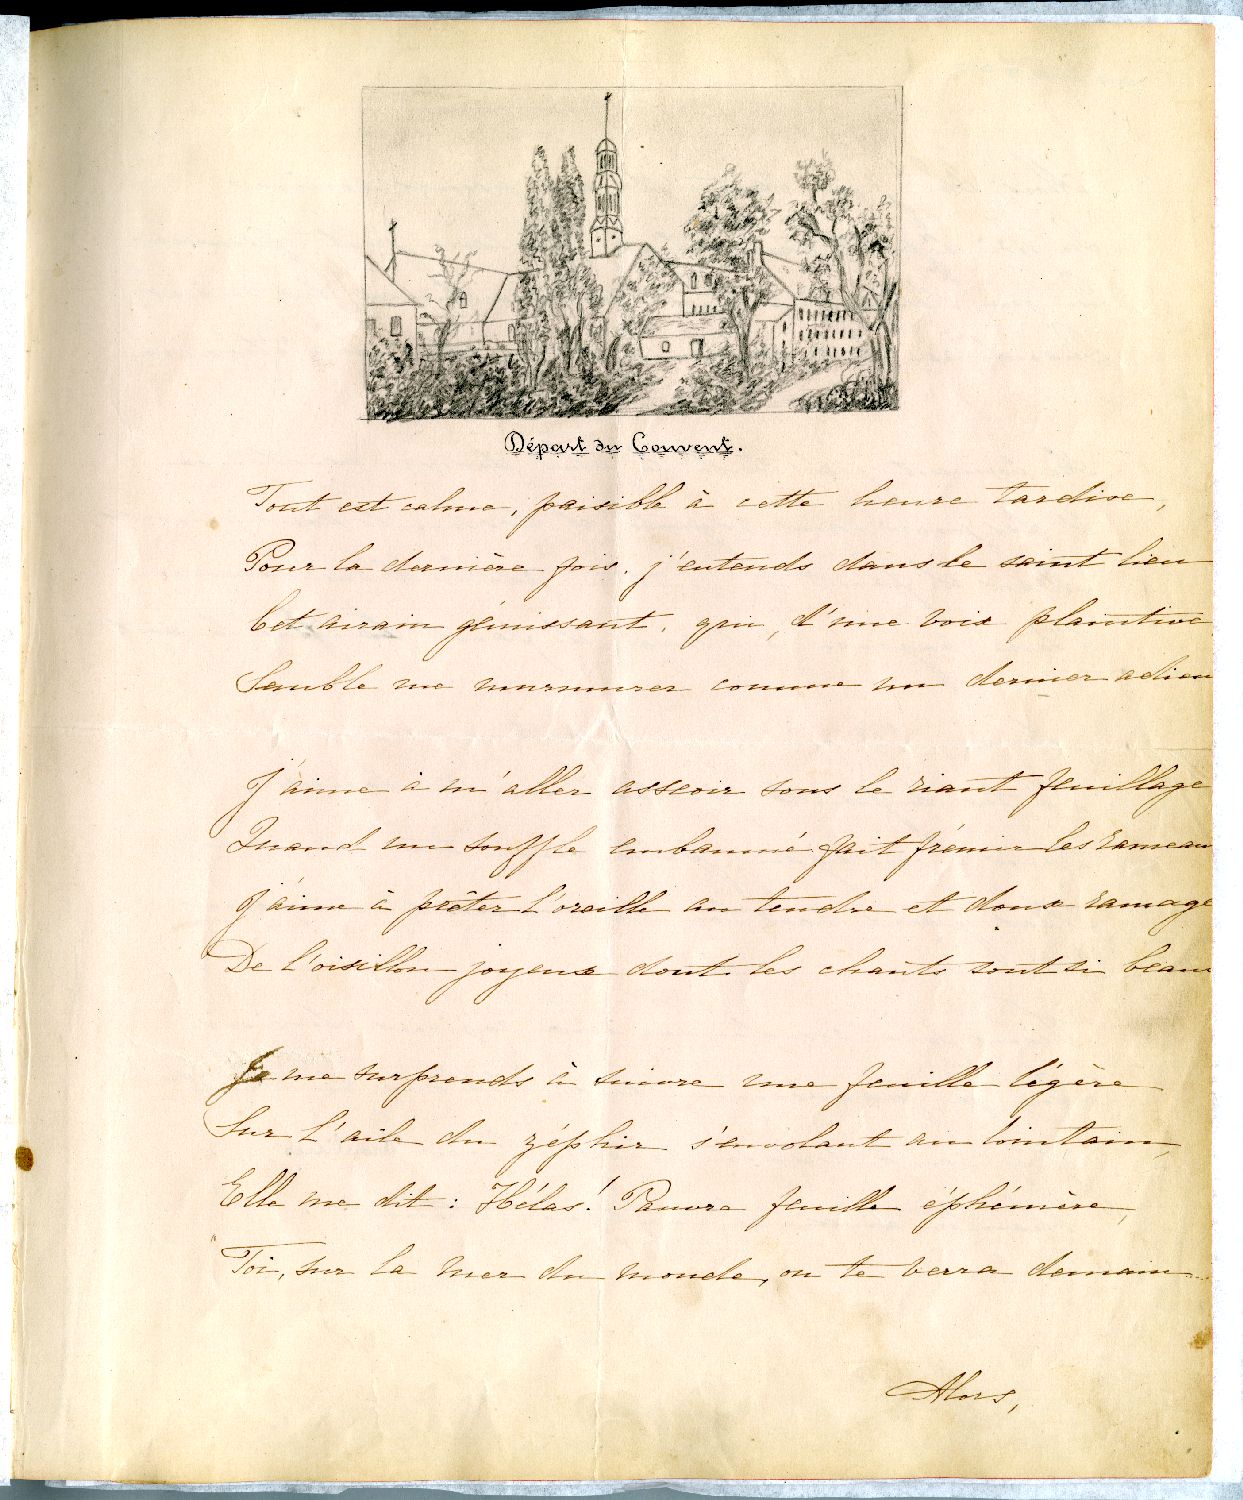 Départ du Couvent.
Tout est calme, paisible à cette heure tardive,
Pour la dernière fois, j'entends dans le saint lieu
Cet airain gémissant, qui, d'une voix plaintive
Semble me murmurer comme un dernier adieu
J'aime à m'aller asseoir sous le riant feuillage
Quand un souffle embaumé fait frémir les rameau
J'aime à prêter l'oreille au tendre et doux ramage
De l'oisillon joyeux dont les chants sont si beau
Je me surprends à suivre une feuille légère
Sur l'aile du zéphir s'envolant au lointain,
Elle me dit : Hélas! Pauvre feuille éphémère,
"Toi, sur la mer du monde, on te verra demain...
Alors,